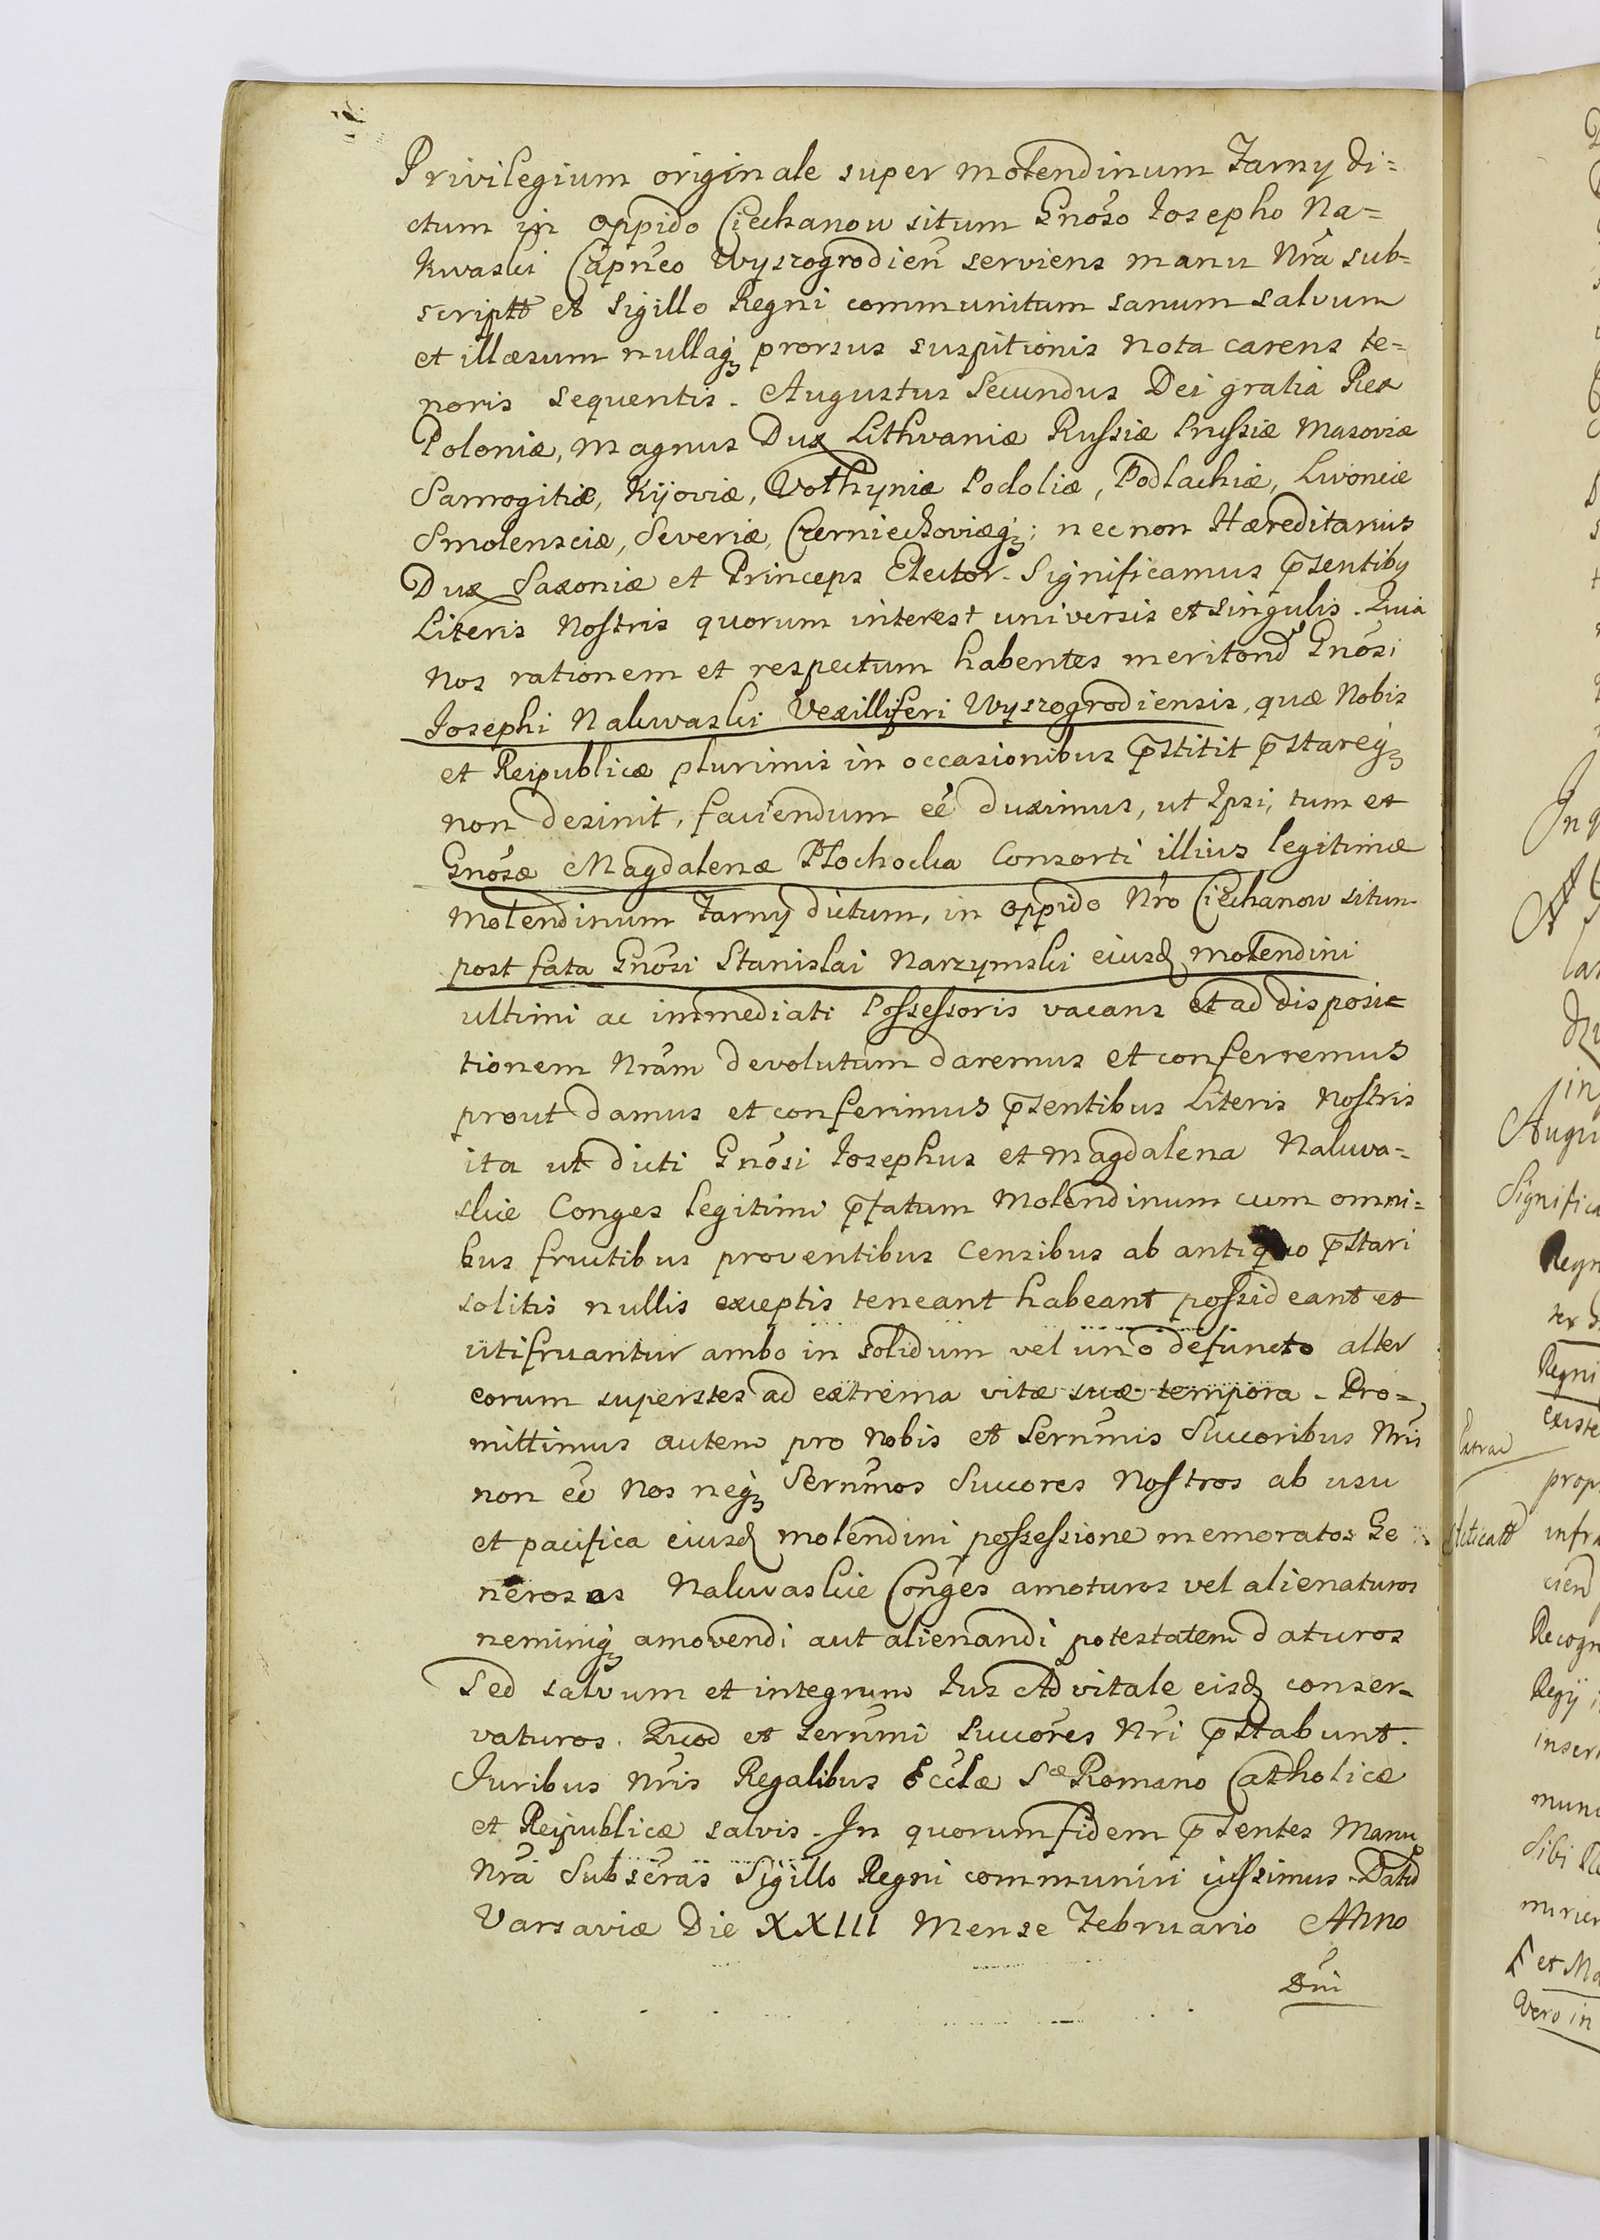 Privilegium originale super molendinum Farny di=
ctum in oppido Ciechanow situm Gnoso Josepho Na=
kwaski Capneo Wyszogrodien serviens manu Nra sub=
script et Sigillo Regni communitum sanum salvum
et illæsum nullaq prorsus suspitionis nota carens te=
noris sequentis. Augustus Secundus Dei gratia Rex
Poloniæ, Magnus Dux Lithvaniæ Russiæ Prussiæ Masoviæ
Samogitiæ, Kijoviæ, Volhyniæ Podoliæ, Podlachiæ, Livoniæ
Smolensciæ, Severiæ, Czerniechoviæq; nec non Hæreditarius
Dux Saxoniæ et Princeps Elector. Significamus psentibq
Literis Nostris quorum interest universis et singulis. Quia
Nos rationem et respectum habentes meritond Gnosi
Josephi Nakwaski Vexilliferi Wyszogrodiensis, quæ Nobis
et Reipublicæ plurimis in occasionibus pstitit pstareq
non desinit, faciendum eê duximus, ut Ipsi, tum et
Gnosæ Magdalenæ Płochocka Consorti illius legitimæ
Molendinum Farny dictum, in oppido Nro Ciechanow situm
post fata Gnosi Stanislai Narzymski eiusd molendini
ultimi ac immediati Possessoris vacans et ad disposi=
tionem Nram devolutum daremus et conferremus
prout damus et conferimus psentibus Literis Nostris
ita ut dicti Gnosi Josephus et Magdalena Nakwa=
skie Conges legitimi pfatum Molendinum cum omni=
bus fructibus proventibus Censibus ab antiquo pstari
solitis nullis exceptis teneant habeant possideant et
utifruantur ambo in solidum vel uno defuncto alter
eorum superstes ad extrema vitæ suæ tempora. Pro=
mittimus autem pro Nobis et Sernmis Succoribus Nris
non eê Nos neq Sernmos Succores Nostros ab usu
et pacifica eiusd molendini possessione memoratos Ge
nerosos Nakwaskie Conges amoturos vel alienaturos
neminiq amovendi aut alienandi potestatem daturos
Sed salvum et integrum Jus Advitale eisd conser=
vaturos. Quod et Sernmi Succores Nri pstabunt.
Juribus Nris Regalibus Ecclæ Scæ Romano Catholicæ
et Reipublicæ salvis. In quorum fidem psentes Manu
Nra Subscras Sigillo Regni communiri iussimus. Datd
Varsaviæ Die XXIII Mense Februario Anno
Dni